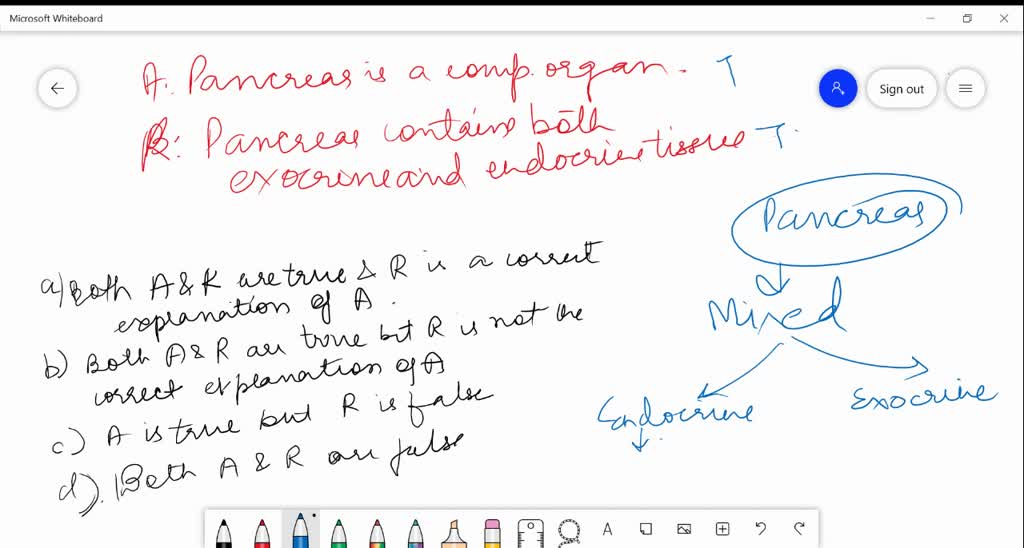 Microsoft Whiteboard
Sign out
A. Pancreas is a comp. organ. T
R: Pancreas contains both
exocrine and endocrine tissue T.
Pancreas
Mixed
Endocrine
Exocrine
a) Both A & R are true & R is a correct
explanation of A.
b) Both A & R are true but R is not the
correct explanation of A
c) A is true but R is false
d). Both A & R are false
A